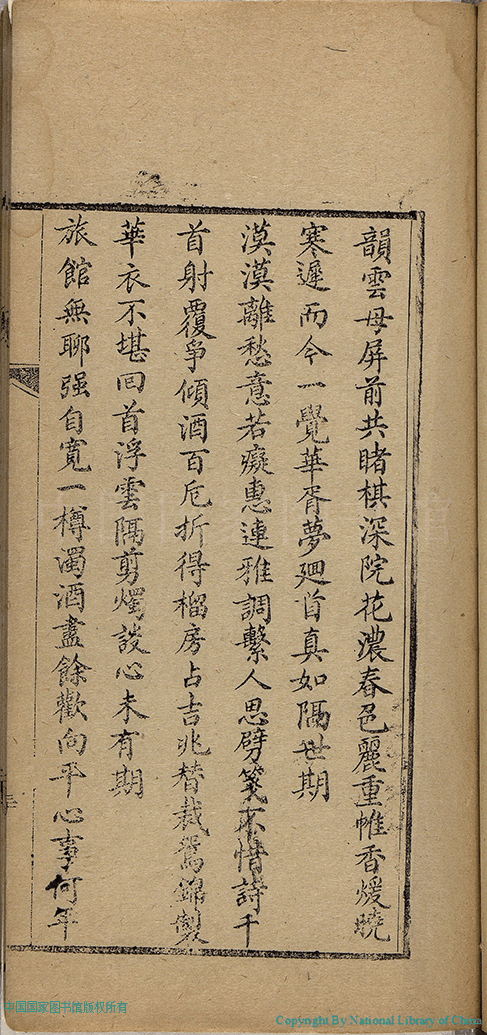 韻雲母屏前共賭棋深院花濃春色麗重帷香煖曉
寒遲而今一覺華胥夢廻首真如隔世期
漠漠離愁意若癡惠連雅調繫人思劈箋不惜詩千
首射覆爭傾酒百卮折得榴房占吉兆替裁鴛錦製
華衣不堪回首浮雲隔剪燭談心未有期
旅館無聊强自寬一樽濁酒盡餘歡向平心事何年
中国国家图书馆版权所有
Copyright By National Library of China